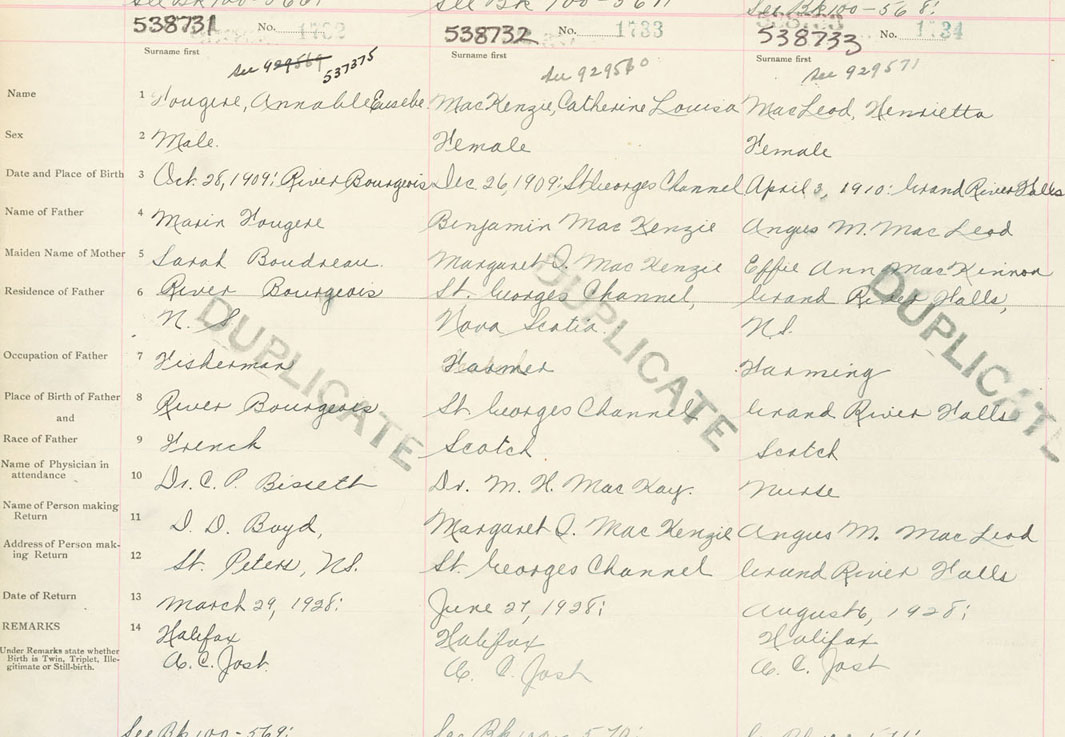 See Bk 100-5
See Bk 100-5
See Bk 100-568:
538731 No. 1732
538732 No. 1733
538733 No. 1734
Surname first
Surname first
Surname first
See 929569 537375
See 929560
See 929571
Name 1 Fougere, Annable Eusebe MacKenzie, Catherine Louisa MacLeod, Henrietta
Sex 2 Male. Female Female
Date and Place of Birth 3 Oct. 28, 1909: River Bourgeois Dec 26, 1909: St Georges Channel April 3, 1910: Grand River Falls
Name of Father 4 Marin Fougere Benjamin MacKenzie Angus M. MacLeod
Maiden Name of Mother 5 Sarah Boudreau. Margaret J. MacKenzie Effie Ann MacKinnon
Residence of Father 6 River Bourgeois St. Georges Channel, Grand River Falls,
N. S. Nova Scotia. N.S.
DUPLICATE DUPLICATE DUPLICATE
Occupation of Father 7 Fisherman Farmer Farming
Place of Birth of Father 8 River Bourgeois St Georges Channel Grand River Falls
and
Race of Father 9 French Scotch Scotch
Name of Physician in
attendance 10 Dr. C. P. Bisseth Dr. M. H. MacKay. Nurse
Name of Person making
Return 11 D. D. Boyd, Margaret J. MacKenzie Angus M. MacLeod
Address of Person mak-
ing Return 12 St. Peters, N.S. St. Georges Channel Grand River Falls
Date of Return 13 March 29, 1928: June 27, 1928: August 6, 1928:
REMARKS 14 Halifax Halifax Halifax
Under Remarks state whether
Birth is Twin, Triplet, Ille-
gitimate or Still-birth.
A. C. Jost. A. C. Jost A. C. Jost
See Bk 100-569: See Bk 100-570: